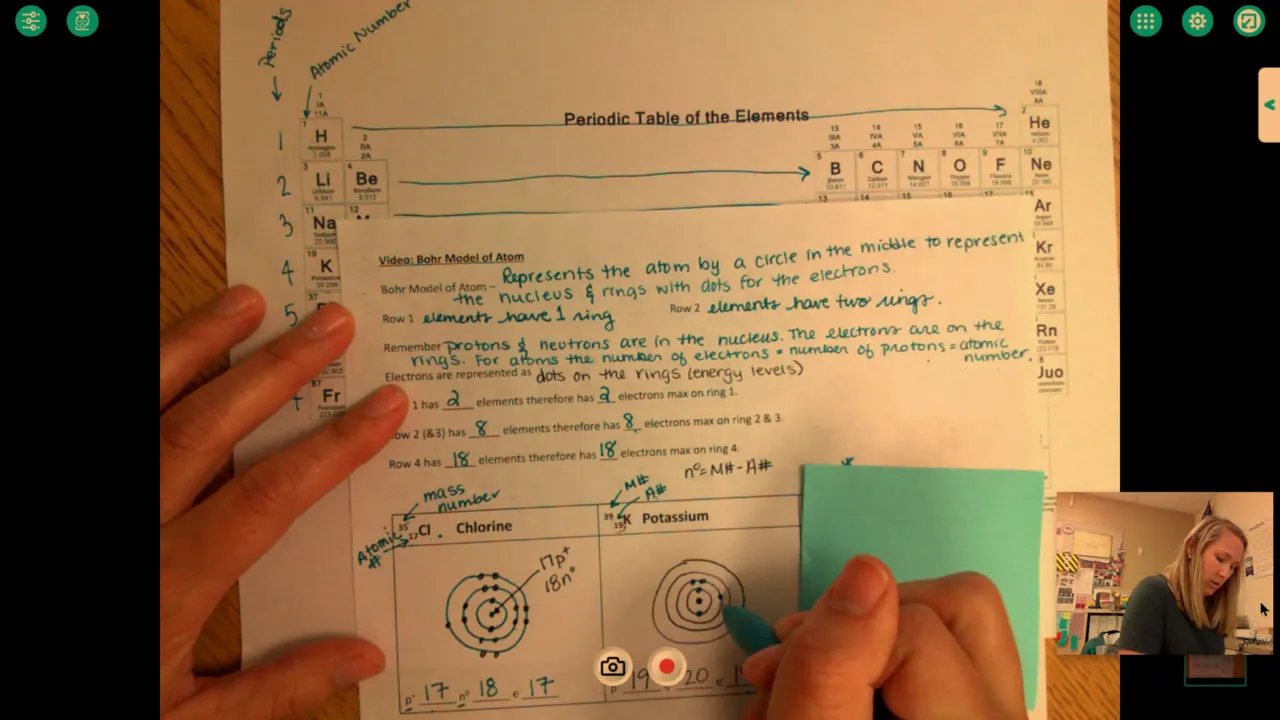 Periods
Atomic Number
1
IA
11A
18
VIIIA
8A
Periodic Table of the Elements
1
1
H
Hydrogen
1.008
2
IIA
2A
13
IIIA
3A
14
IVA
4A
15
VA
5A
16
VIA
6A
17
VIIA
7A
2
He
Helium
2
3
Li
Lithium
6.941
4
Be
Beryllium
9.012
5
B
Boron
10.811
6
C
Carbon
12.011
7
N
Nitrogen
14.007
8
O
Oxygen
15.999
9
F
Fluorine
18.998
10
Ne
Neon
20.180
3
11
Na
Sodium
12
13
14
15
16
17
Ar
Argon
4
19
K
Potassium
39.098
Kr
Krypton
5
37
Xe
Xenon
Rn
Radon
87
Fr
Francium
Juo
Video: Bohr Model of Atom
Bohr Model of Atom – Represents the atom by a circle in the middle to represent
the nucleus & rings with dots for the electrons.
Row 1 elements have 1 ring Row 2 elements have two rings.
Remember protons & neutrons are in the nucleus. The electrons are on the
rings. For atoms the number of electrons = number of protons = atomic
number.
Electrons are represented as dots on the rings (energy levels)
1 has 2 elements therefore has 2 electrons max on ring 1.
Row 2 (&3) has 8 elements therefore has 8 electrons max on ring 2 & 3.
Row 4 has 18 elements therefore has 18 electrons max on ring 4.
n° = M# - A#
mass
number
M#
A#
Atomic
#
35
17 Cl Chlorine
39
19 K Potassium
17p+
18n°
p+ 17 n° 18 e 17
p 19 20 e